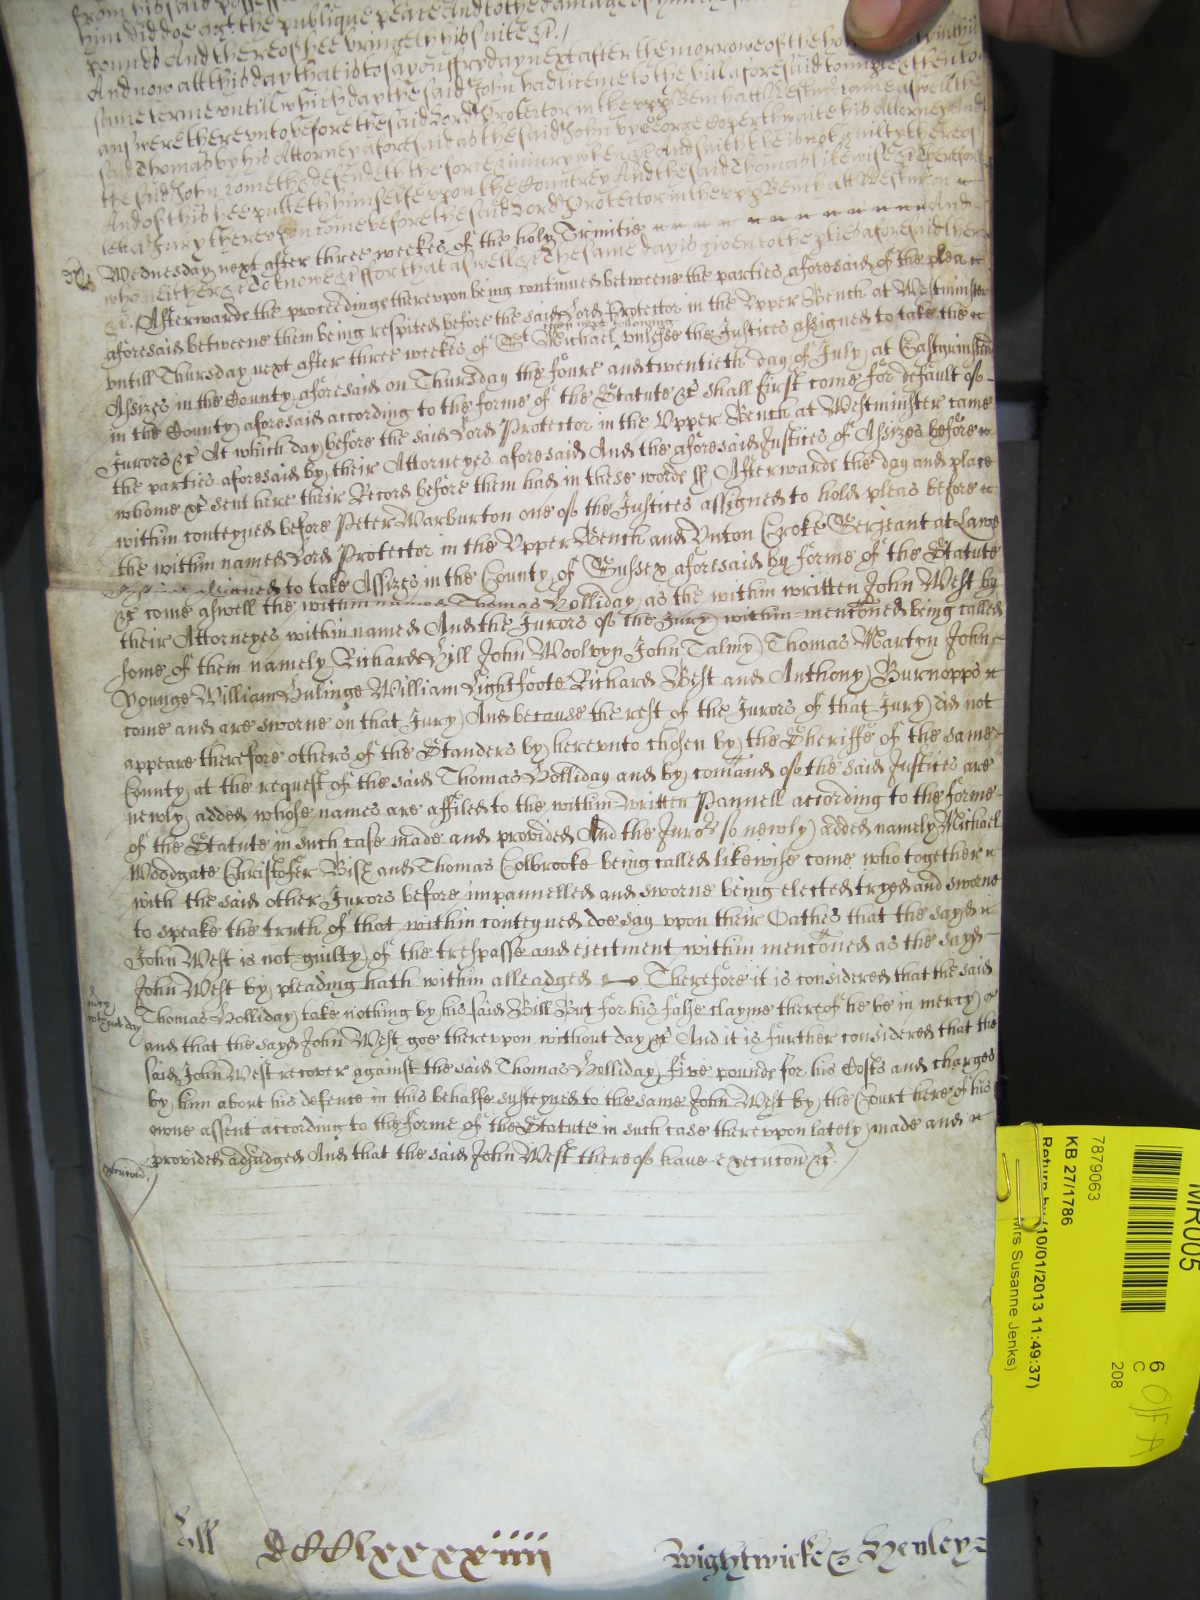 from his said possess
him did doe agt. the publique peace And to the damage of
pounds And thereof hee bringeth his suite &c. /
And now att this day that is to say on ffryday next after the morrowe of the holy
same terme untill which day the said John had licence to the bill aforesaid to
answere thereunto before the said Lord Protector in the upp Bench att Westmr came aswell the
said Thomas by his Attorney aforesaid as the said John by George Coperthwaite his Attorney And
the said John cometh & defendeth the force & iniury when &c And saith he is not guilty thereof
And of this hee putteth himselfe upon the Countrey And the said Thomas likewise &c Therefore
lett a Jury thereupon come before the said Lord Protector in the upp Bench att Westmr on
Wednesday next after three weekes of the holy Trinitie And
who neither &c to knowe &c ffor that aswell &c The same day is given to the pties aforesaid there
&c. Afterwards the proceedings thereupon being continued betweene the parties aforesaid of the plea
aforesaid betweene them being respited before the said Lord Protector in the Upper Bench at Westminster
then next following
untill Thursday next after three weekes of St Michael unlesse the Justices assigned to take the
Assizes in the County aforesaid on Thursday the foure and twentieth day of July at Eastgrinsted
in the County aforesaid according to the forme of the Statute &c shall first come for default of
Jurors &c At which day before the said Lord Protector in the Upper Bench at Westminster came
the parties aforesaid by their Attorneyes aforesaid And the aforesaid Justices of Assizes before
whome &c sent here their Record before them had in these words ss Afterwards the day and place
within conteyned before Peter Warburton one of the Justices assigned to hold pleas before
the within named Lord Protector in the Upper Bench and Unton Croke Serjeant at Lawe
assigned to take Assizes in the County of Sussex aforesaid by forme of the Statute
&c come aswell the within named Thomas Holliday as the within written John West by
their Attorneyes within named And the Jurors of the Jury within mentoned being called
some of them namely Richard Hill John Woolvyn John Talmy Thomas Martyn John
Younge William Hulinge William Lightfoote Richard Best and Anthony Burnopps
come and are sworne on that Jury And because the rest of the Jurors of that Jury did not
appeare therefore others of the Standers by hereunto chosen by the Sheriffe of the same
County at the request of the said Thomas Holliday and by comand of the said Justices are
newly added whose names are affiled to the within written Pannell according to the forme
of the Statute in such case made and provided And the Jurors so newly added namely Michael
Woodgate Christofer Bish and Thomas Colbrooke being called likewise come who together
with the said other Jurors before impannelled and sworne being elected tryed and sworne
to speake the truth of that within conteyned doe say upon their Oathes that the sayd
John West is not guilty of the trespasse and ejectment within mentoned as the sayd
John West by pleading hath within alleadged Therefore it is considered that the said
Thomas Holliday take nothing by his said Bill But for his false clayme thereof he be in mercy &c
and that the sayd John West goe thereupon without day &c And it is further considered that the
said John West recover against the said Thomas Holliday five pounds for his Costs and charges
by him about his defence in this behalfe susteyned to the same John West by the Court here of his
owne assent according to the forme of the Statute in such case thereupon lately made and
provided adjudged And that the said John West thereof have executon &c. /
mercy
without day
Wightwicke & Henley
MR005
6
C
208
7879063
KB 27/1786
Return by (10/01/2013 11:49:37)
Mrs Susanne Jenks)